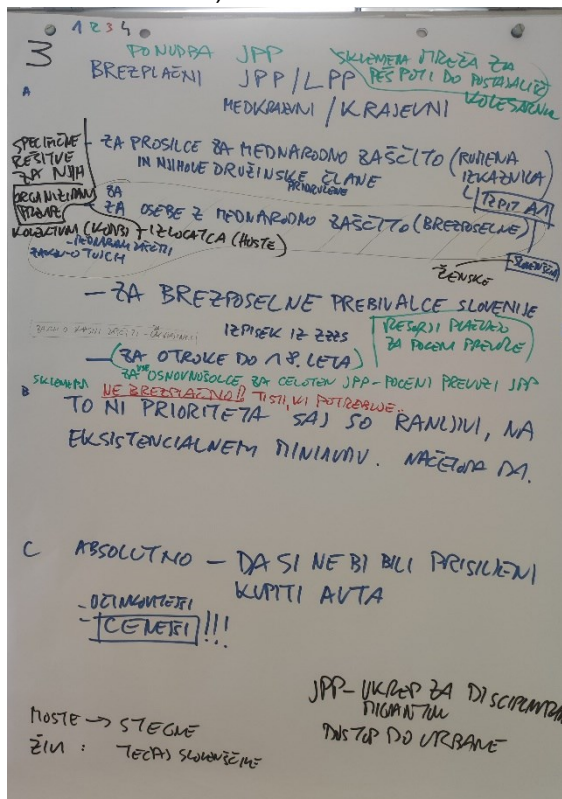 1 2 3 4
3
PONUDBA JPP
SKLENJENA MREŽA ZA
PEŠ POTI DO POSTAJALIŠČ
KOLESARNIC
BREZPLAČNI JPP/LPP
MEDKRAJEVNI / KRAJEVNI
A
SPECIFIČNE
REŠITVE
ZA NJIH
ORGANIZIRANI
PREVOZI
- ZA PROSILCE ZA MEDNARODNO ZAŠČITO (RUMENA
IZKAZNICA
IN NJIHOVE DRUŽINSKE ČLANE
PRIDRUŽENE
IZPIT A1
ZA
ZA OSEBE Z MEDNARODNO ZAŠČITO (BREZPOSELNE)
KOLEKTIVNI (KOMBI) IZ LOGATCA (HOSTE)
ZAKON O TUJCIH
ŽENSKE
- ZA BREZPOSELNE PREBIVALCE SLOVENIJE
IZPISEK IZ ZZZS
RESORJI PLAČAJO
ZA POCENI PREVOZE
- (ZA OTROKE DO 18. LETA)
ZA VSE OSNOVNOŠOLCE ZA CELOTEN JPP - POCENI PREVOZI JPP
SKLENJENA
NE BREZPLAČNO!! TISTI, KI POTREBUJE..
B
TO NI PRIORITETA SAJ SO RANLJIVI, NA
EKSISTENCIALNEM MINIMUMU. NAČELOMA DA.
C ABSOLUTNO - DA SI NE BI BILI PRISILJENI
KUPITI AVTA
- UČINKOVITEJŠI
- CENEJŠI !!!
JPP - UKREP ZA DISCIPLINIRANJE
MIGRANTOV
DOSTOP DO URBANE
MOSTE → STEGNE
ŽIVI : TEČAJ SLOVENŠČINE